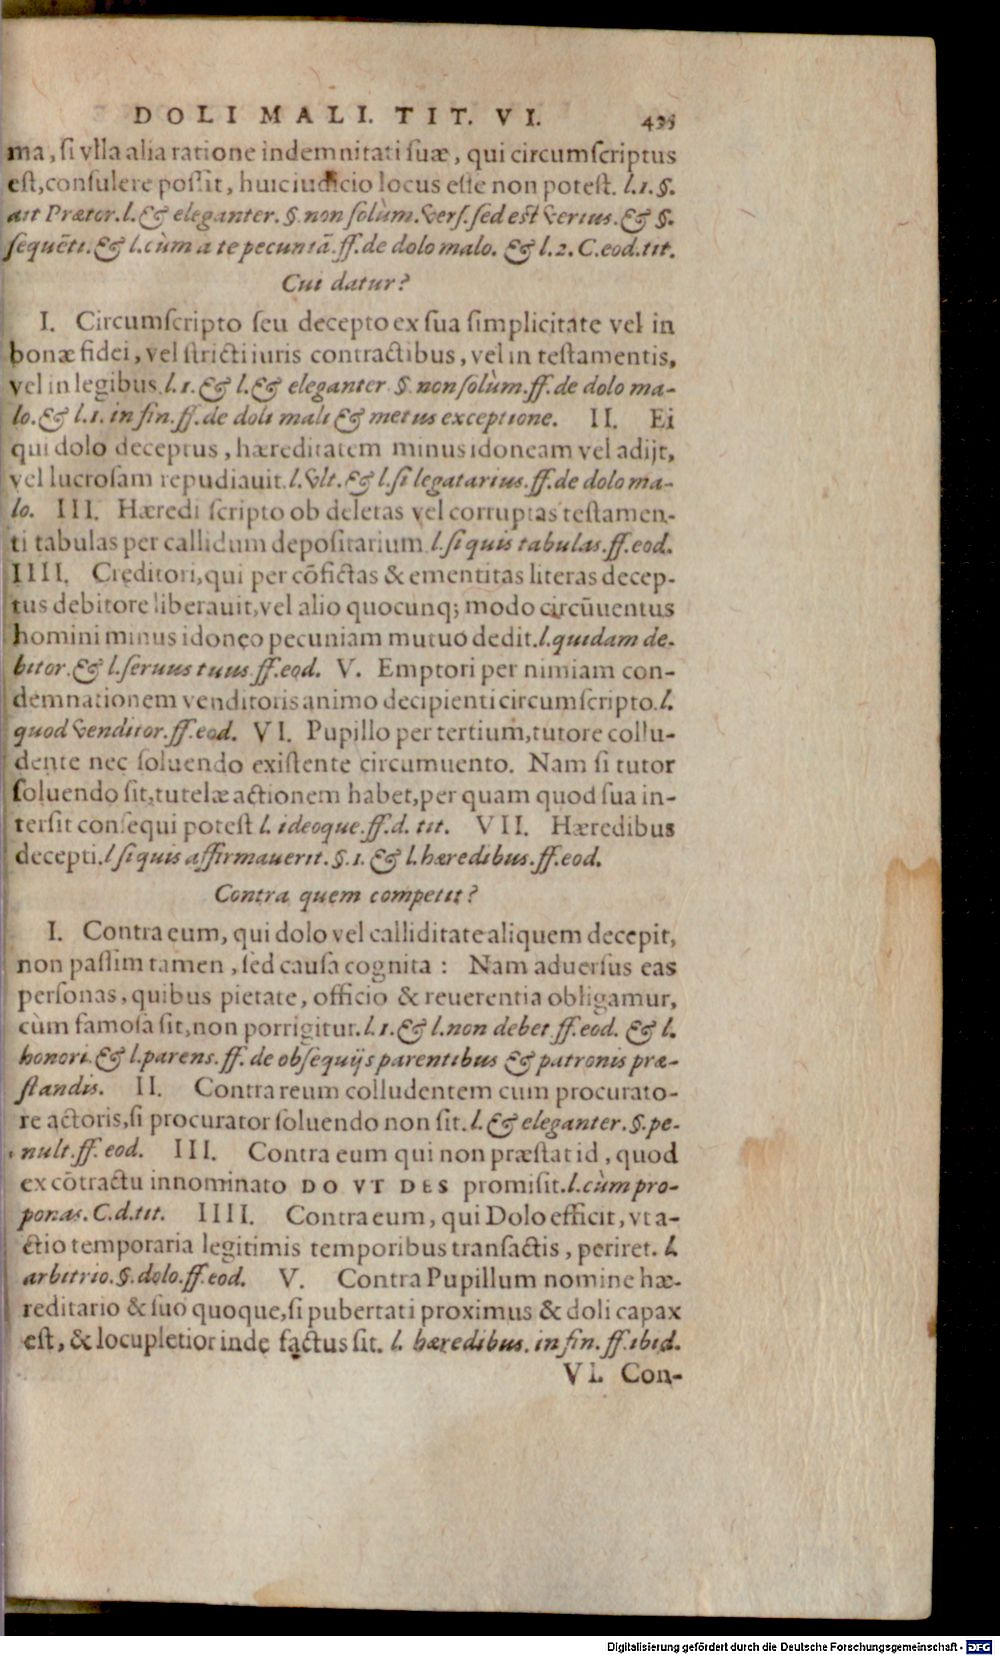 DOLI MALI. TIT. VI. 435
ma, ſi vlla alia ratione indemnitati ſuæ, qui circumſcriptus
eſt, conſulere poſſit, huic iudicio locus eſſe non poteſt. l. 1. §.
ait Prætor. l. & eleganter. §. non ſolùm. verſ. ſed eſt verius. & §.
ſequẽti. & l. cùm a te pecuniã. ff. de dolo malo. & l. 2. C. eod. tit.
Cui datur?
I. Circumſcripto ſeu decepto ex ſua ſimplicitate vel in
bonæ fidei, vel ſtricti iuris contractibus, vel in teſtamentis,
vel in legibus. l. 1. & l. & eleganter §. non ſolùm. ff. de dolo ma-
lo. & l. 1. in fin. ff. de doli mali & metus exceptione. II. Ei
qui dolo deceptus, hæreditatem minus idoneam vel adijt,
vel lucroſam repudiauit. l. vlt. & l. ſi legatarius. ff. de dolo ma-
lo. III. Hæredi ſcripto ob deletas vel corruptas teſtamen-
ti tabulas per callidum depoſitarium l. ſi quis tabulas. ff. eod.
IIII. Creditori, qui per cõfictas & ementitas literas decep-
tus debitore liberauit, vel alio quocunq; modo circũuentus
homini minus idoneo pecuniam mutuo dedit. l. quidam de-
bitor. & l. ſeruus tuus ff. eod. V. Emptori per nimiam con-
demnationem venditoris animo decipienti circumſcripto. l.
quod venditor. ff. eod. VI. Pupillo per tertium, tutore collu-
dente nec ſoluendo exiſtente circumuento. Nam ſi tutor
ſoluendo ſit, tutelæ actionem habet, per quam quod ſua in-
terſit conſequi poteſt l. ideoque. ff. d. tit. VII. Hæredibus
decepti. l ſi quis affirmauerit. §. 1. & l. hæredibus. ff. eod.
Contra quem competit?
I. Contra eum, qui dolo vel calliditate aliquem decepit,
non paſſim tamen, ſed cauſa cognita: Nam aduerſus eas
perſonas, quibus pietate, officio & reuerentia obligamur,
cùm famoſa ſit, non porrigitur. l. 1. & l. non debet ff. eod. & l.
honori. & l. parens. ff. de obſequijs parentibus & patronis præ-
ſtandis. II. Contra reum colludentem cum procurato-
re actoris, ſi procurator ſoluendo non ſit. l. & eleganter. §. pe-
nult. ff. eod. III. Contra eum qui non præſtat id, quod
ex cõtractu innominato DO VT DES promiſit. l. cùm pro-
ponas. C. d. tit. IIII. Contra eum, qui Dolo efficit, vt a-
ctio temporaria legitimis temporibus tranſactis, periret. l.
arbitrio. §. dolo. ff. eod. V. Contra Pupillum nomine hæ-
reditario & ſuo quoque, ſi pubertati proximus & doli capax
eſt, & locupletior inde factus ſit. l. hæredibus. in fin. ff. ibid.
VI. Con-
Digitalisierung gefördert durch die Deutsche Forschungsgemeinschaft - DFG